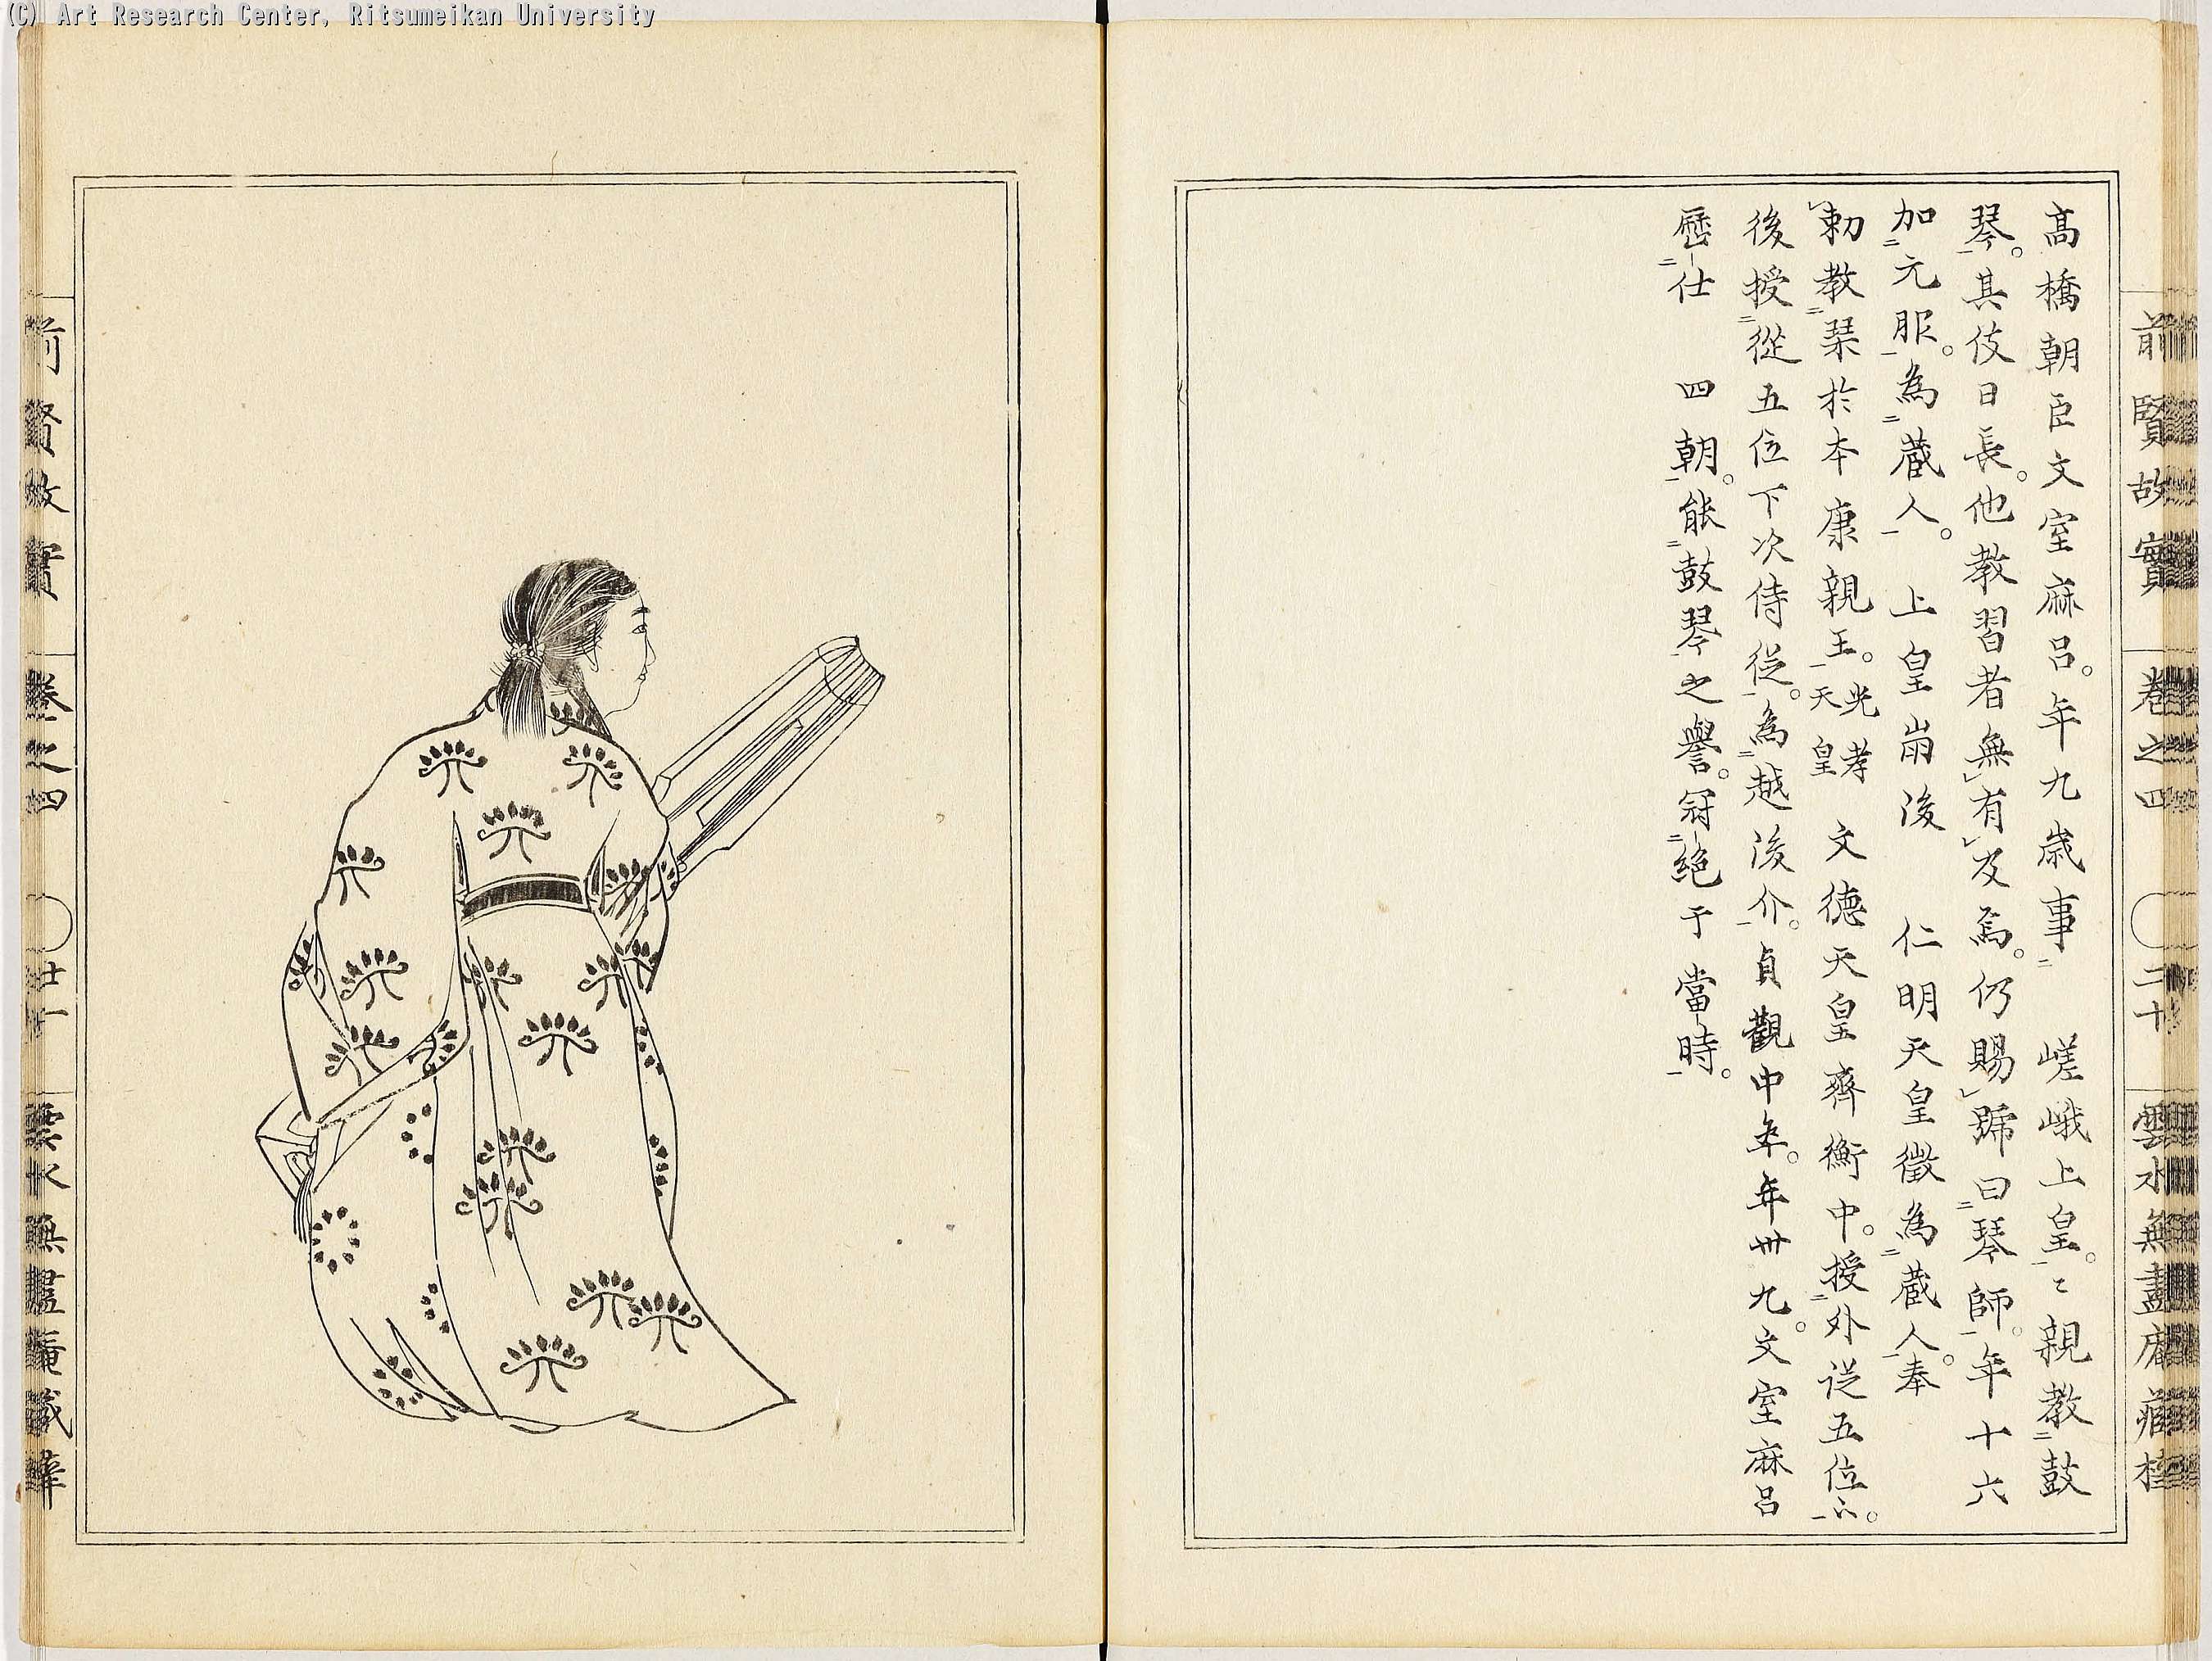 (C) Art Research Center, Ritsumeikan University
前賢故實 巻之四 二十 雲水無盡庵藏
高橋朝臣文室麻呂。年九歳事 嵯峨上皇。〻親教鼓
琴。其伎日長。他教習者無有及焉。仍賜號曰琴師。年十六
加元服。為蔵人。 上皇崩後 仁明天皇徴為蔵人。奉
勅教琹於本康親王。光孝天皇 文徳天皇齊衡中。授外従五位下。
後授從五位下次侍從。為越後介。貞觀中卒。年卅九。文室麻呂
歴仕 四朝。能鼓琴之譽。冠絶于當時。
前賢故實 巻之四 廿一 雲水無盡庵藏